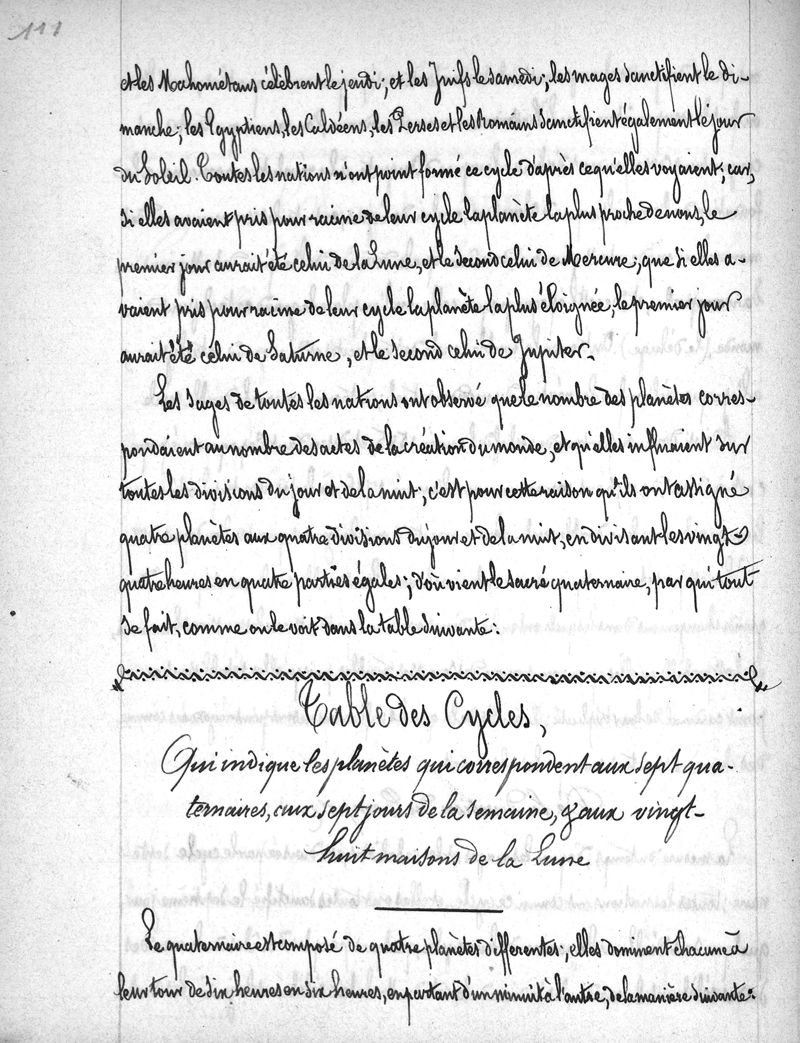 111
et les Mahométans célèbrent le jeudi; et les Juifs le samedi; les mages sanctifient le di-
manche; les Egyptiens, les Caldéens, les Perses et les Romains sanctifient également le jour
du Soleil. Toutes les nations n'ont point formé ce cycle d'après ce qu'elles voyaient; car,
si elles avaient pris pour racine de leur cycle la planète la plus proche de nous, le
premier jour aurait été celui de la Lune, et le second celui de Mercure; que si elles a-
vaient pris pour racine de leur cycle la planète la plus éloignée, le premier jour
aurait été celui de Saturne, et le second celui de Jupiter.
Les sages de toutes les nations ont observé que le nombre des planètes corres-
pondaient au nombre des actes de la création du monde, et qu'elles influaient sur
toutes les divisions du jour et de la nuit; c'est pour cette raison qu'ils ont assigné
quatre planètes aux quatre divisions du jour et de la nuit, en divisant les vingt-
quatre heures en quatre parties égales; d'où vient le sacré quaternaire, par qui tout
se fait, comme on le voit dans la table suivante:
Table des Cycles,
Qui indique les planètes qui correspondent aux sept qua-
ternaires, aux sept jours de la semaine, & aux vingt-
huit maisons de la Lune
Le quaternaire est composé de quatre planètes différentes; elles dominent chacune à
leur tour de six heures en six heures, en partant d'un minuit à l'autre, de la manière suivante: